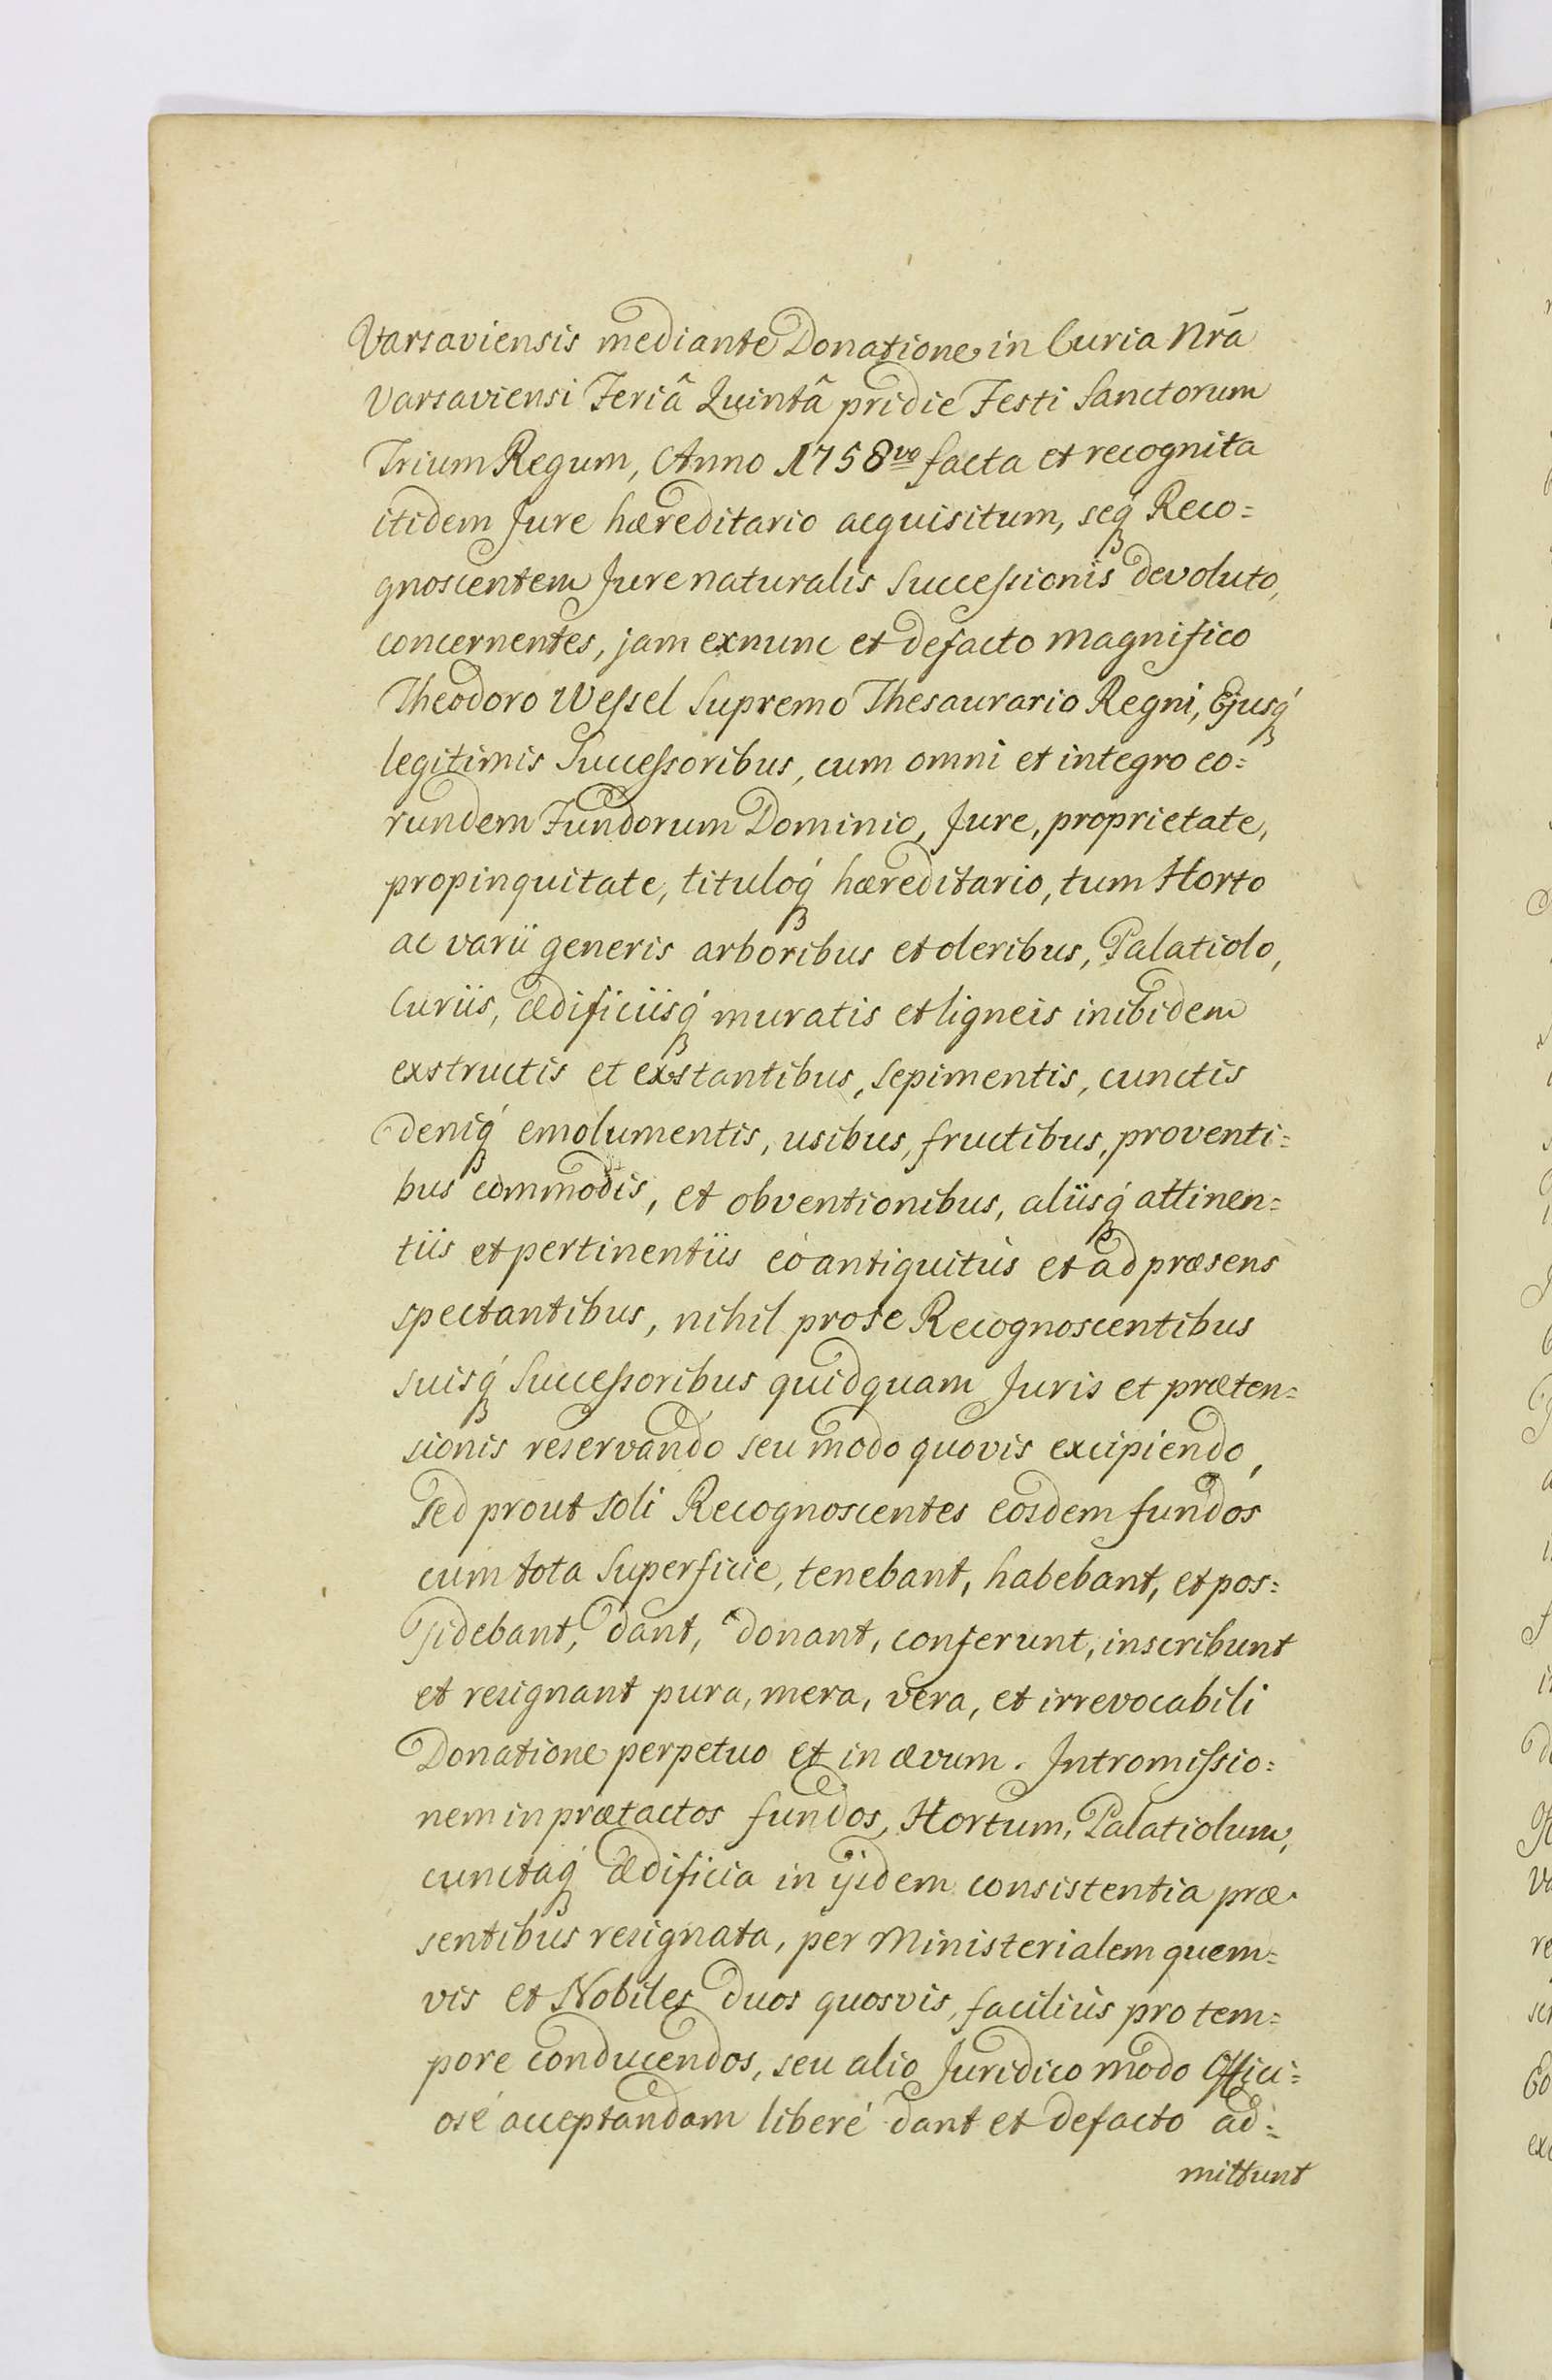 Varsaviensis mediante Donatione in Curia Nrã
Varsaviensi Feriâ Quintâ pridie Festi Sanctorum
Trium Regum, Anno 1758vo facta et recognita
itidem Jure hæreditario acquisitum, seq́ Reco=
gnoscentem Jure naturalis Successionis devoluto,
concernentes, jam exnunc et defacto Magnifico
Theodoro Wessel Supremo Thesaurario Regni, Ejusq́
legitimis Successoribus, cum omni et integro eo=
rundem Fundorum Dominio, Jure, proprietate,
propinquitate, tituloq́ hæreditario, tum Horto
ac varii generis arboribus et oleribus, Palatiolo,
Curiis, ædificiisq́ muratis et ligneis inibidem
exstructis et exstantibus, sepimentis, cunctis
deniq́ emolumentis, usibus, fructibus, proventi=
bus commodis, et obventionibus, aliisq́ attinen=
tiis et pertinentiis eó antiquitùs et ad præsens
spectantibus, nihil prose Recognoscentibus
suisq́ Successoribus quidquam Juris et præten=
sionis reservando seu modo quovis excipiendo,
sed prout soli Recognoscentes eosdem fundos
cum tota Superficie, tenebant, habebant, et pos=
sidebant, dant, donant, conferunt, inscribunt
et resignant pura, mera, vera, et irrevocabili
Donatione perpetuo et in ævum. Intromissio=
nem in prætactos fundos, Hortum, Palatiolum,
cunctaq́ ædificia in ijsdem consistentia præ
sentibus resignata, per Ministerialem quem=
vis et Nobiles duos quosvis, faciliùs pro tem=
pore conducendos, seu alio Juridico modo Offici=
osé acceptandam liberé dant et defacto ad=
mittunt